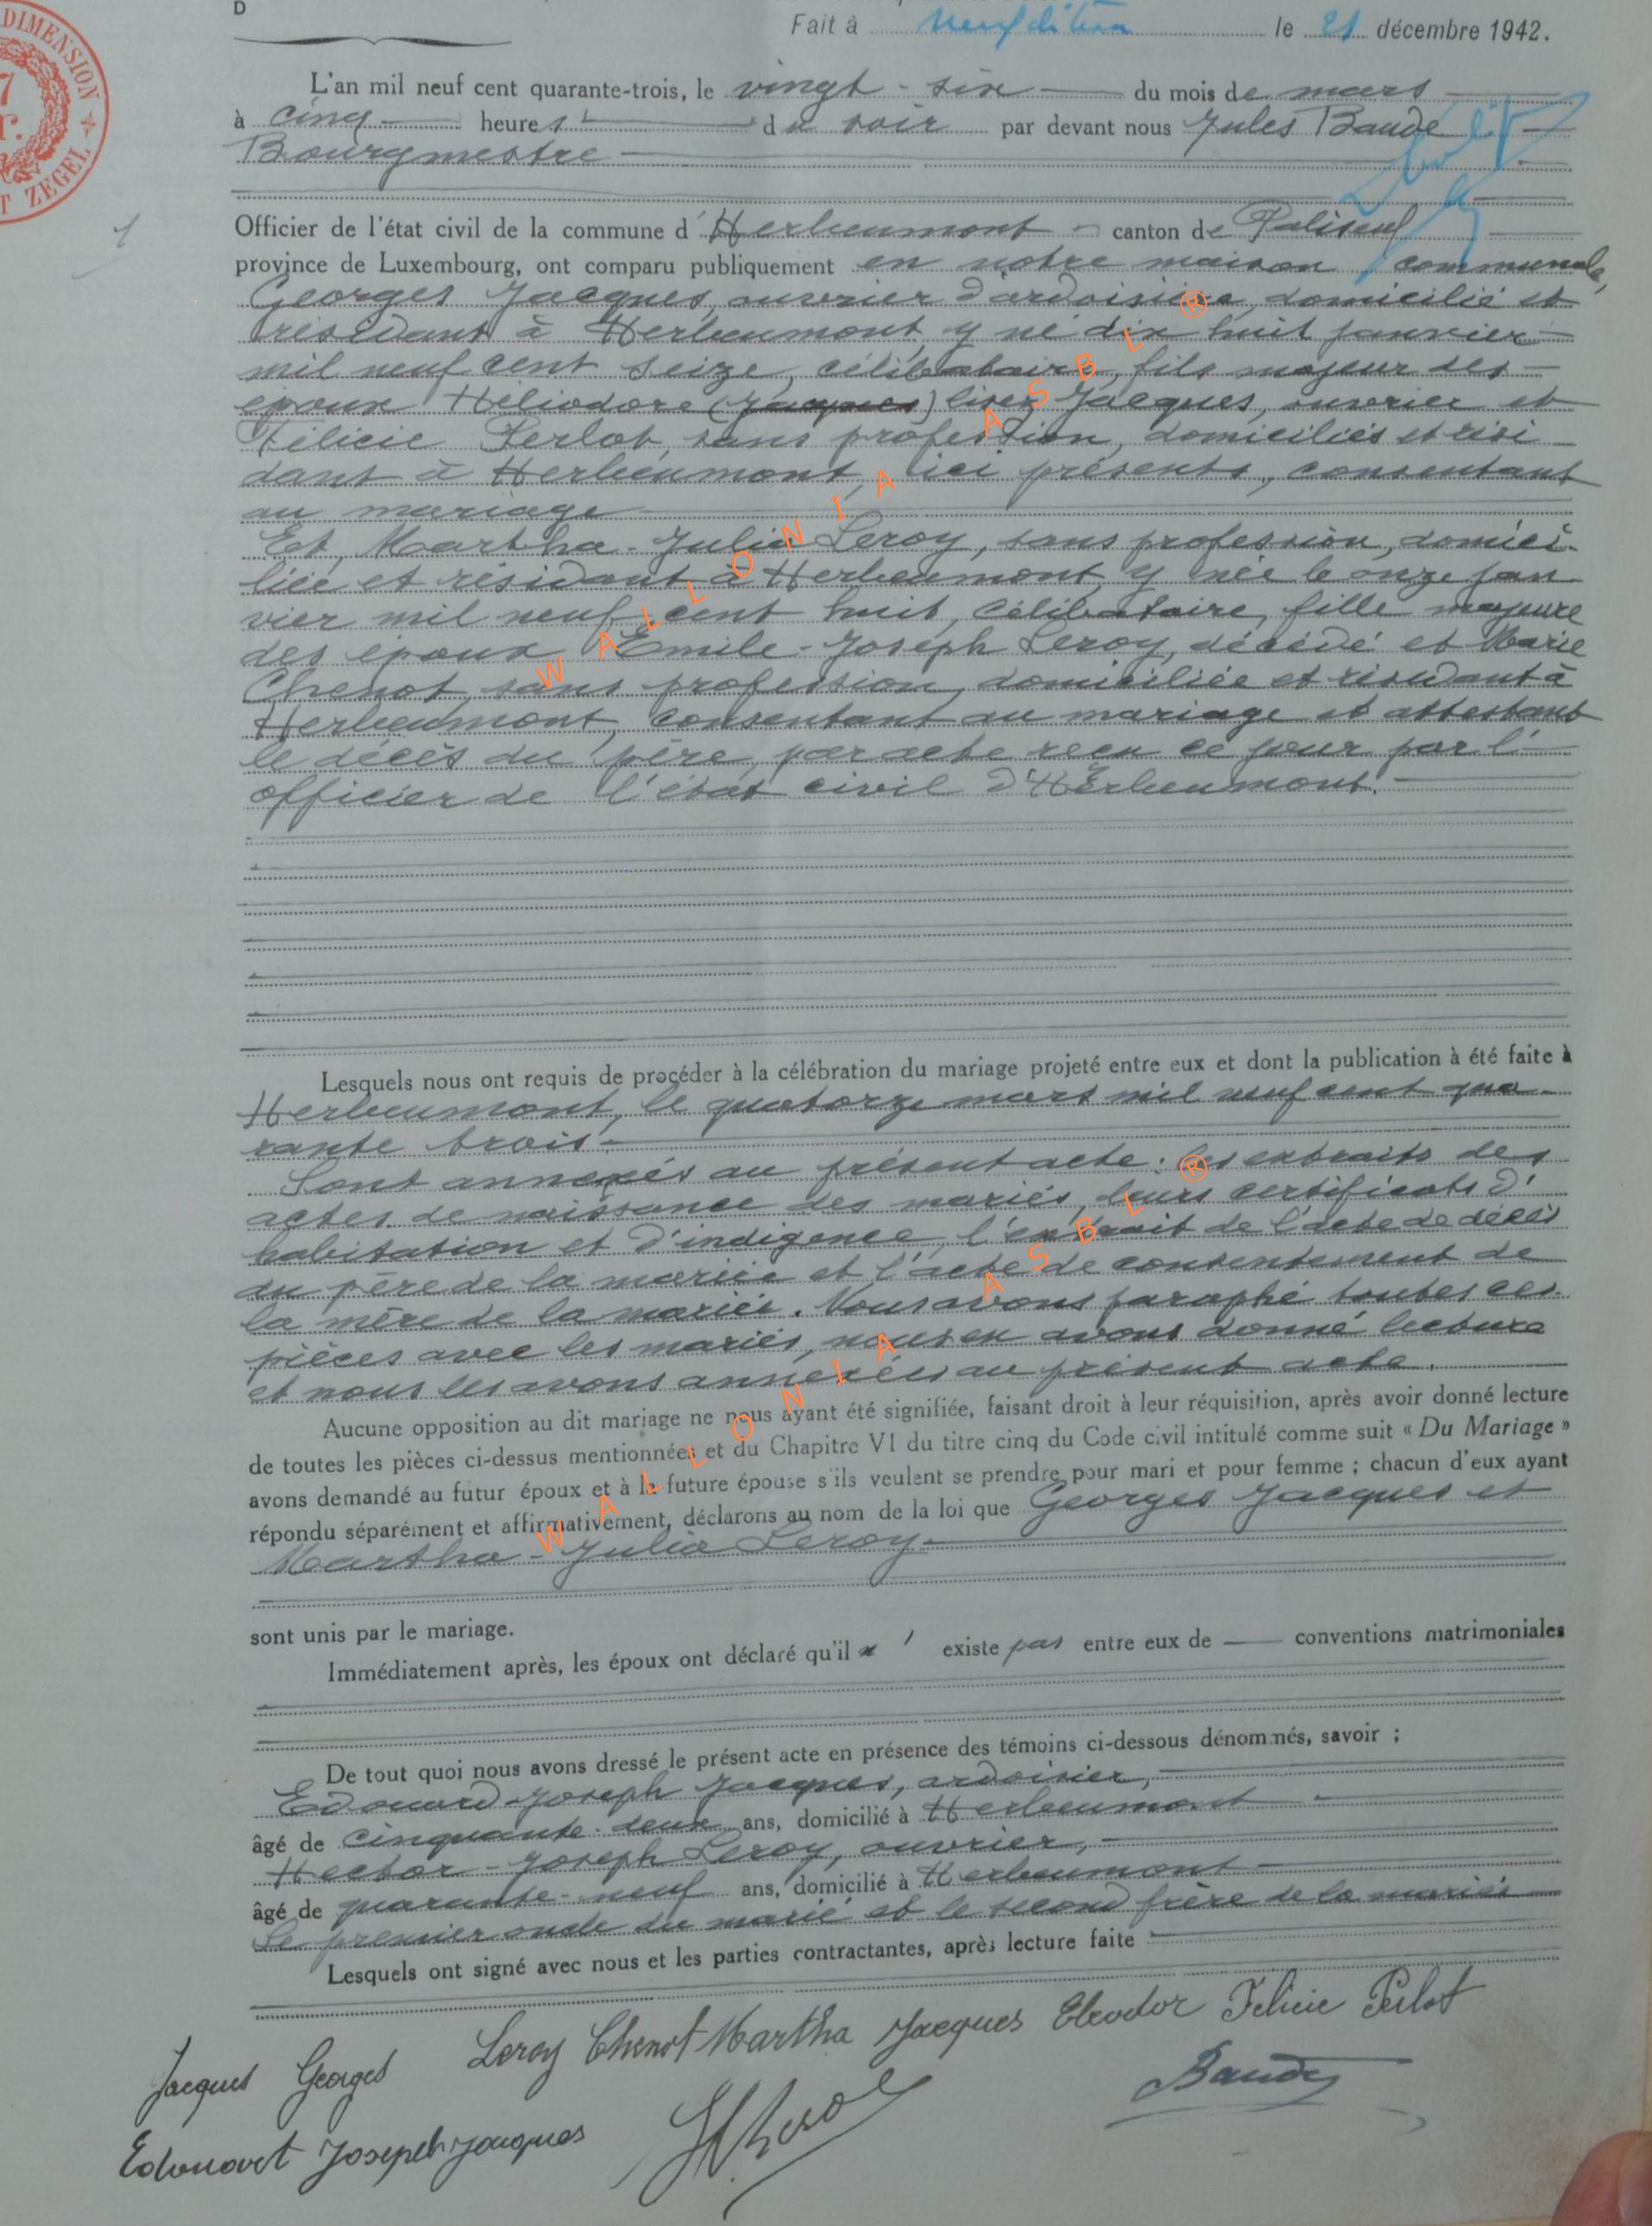 D
Fait à Neufchâteau le 21 décembre 1942.
DIMENSION
ZEGEL
L'an mil neuf cent quarante-trois, le vingt-six du mois de mars
à cinq heures du soir par devant nous Jules Baude
Bourgmestre
1
Officier de l'état civil de la commune d'Herbeumont canton de Paliseul
province de Luxembourg, ont comparu publiquement en notre maison communale,
Georges Jacques, ouvrier d'ardoisière, domicilié et
résidant à Herbeumont, y né dix huit janvier
mil neuf cent seize, célibataire, fils majeur des
époux Héliodore (Jacques) lisez Jacques, ouvrier et
Félicie Perlot, sans profession, domiciliés et rési
dant à Herbeumont, ici présents, consentant
au mariage
Et, Martha-Julia Leroy, sans profession, domici-
liée et résidant à Herbeumont, y née le onze jan
vier mil neuf cent huit, célibataire, fille majeure
des époux Emile-Joseph Leroy, décédé et Marie
Chenot, sans profession, domiciliée et résidant à
Herbeumont, consentant au mariage et attestant
le décès du père, par acte reçu ce jour par l'
officier de l'état civil d'Herbeumont.
WALLONIA ASBL ®
Lesquels nous ont requis de procéder à la célébration du mariage projeté entre eux et dont la publication à été faite à
Herbeumont, le quatorze mars mil neuf cent qua-
rante trois
Sont annexés au présent acte: les extraits des
actes de naissance des mariés, leurs certificats d'
habitation et d'indigence, l'extrait de l'acte de décès
du père de la mariée et l'acte de consentement de
la mère de la mariée. Nous avons paraphé toutes ces
pièces avec les mariés, nous en avons donné lecture
et nous les avons annexées au présent acte.
Aucune opposition au dit mariage ne nous ayant été signifiée, faisant droit à leur réquisition, après avoir donné lecture
de toutes les pièces ci-dessus mentionnées et du Chapitre VI du titre cinq du Code civil intitulé comme suit « Du Mariage »
avons demandé au futur époux et à la future épouse s'ils veulent se prendre pour mari et pour femme ; chacun d'eux ayant
répondu séparément et affirmativement, déclarons au nom de la loi que Georges Jacques et
Martha-Julia Leroy
WALLONIA ASBL ®
sont unis par le mariage.
Immédiatement après, les époux ont déclaré qu'il n' existe pas entre eux de conventions matrimoniales
De tout quoi nous avons dressé le présent acte en présence des témoins ci-dessous dénommés, savoir ;
Edouard-Joseph Jacques, ardoisier,
âgé de cinquante-deux ans, domicilié à Herbeumont
Hector-Joseph Leroy, ouvrier,
âgé de quarante-neuf ans, domicilié à Herbeumont
Le premier oncle du marié et le second frère de la mariée
Lesquels ont signé avec nous et les parties contractantes, après lecture faite
Jacques Georges Leroy Chenot Martha Jacques Eleodor Felicie Perlot
Baude
Edouard Joseph Jacques H Leroy